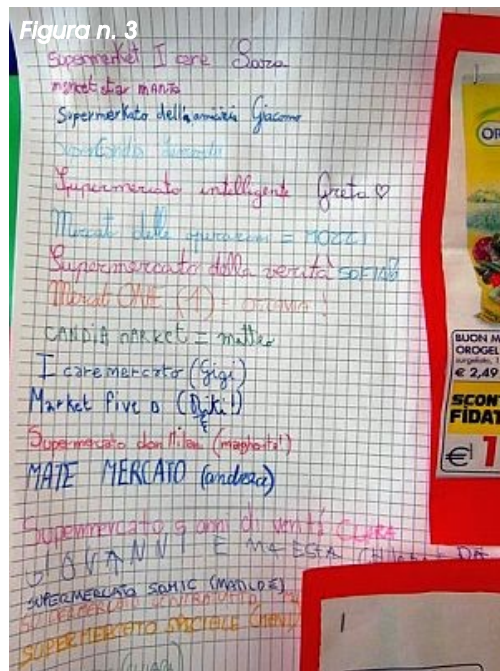 Figura n. 3
Supermerket I care Sara
market star
Supermerkato dell'amicizia Giacomo
Supermercato intelligente Greta ♡
Mercato delle operazioni =
Supermercato della verità SOFIA
Mercat ONE (1) = OTTAVIA!
CANDIA MARKET = matteo
I care mercato (Gigi)
Market five D (Niki!)
Supermercato don Milani (margherita!)
MATE MERCATO (andrea)
Supermercato 5 anni di
GIOVANNI E
SUPERMERCATO SONIC
SUPERMERCATO SPECIALE
OR
BUON M
OROGEL
surgelato,
€ 2,49
SCONT
FIDAT
€ 1